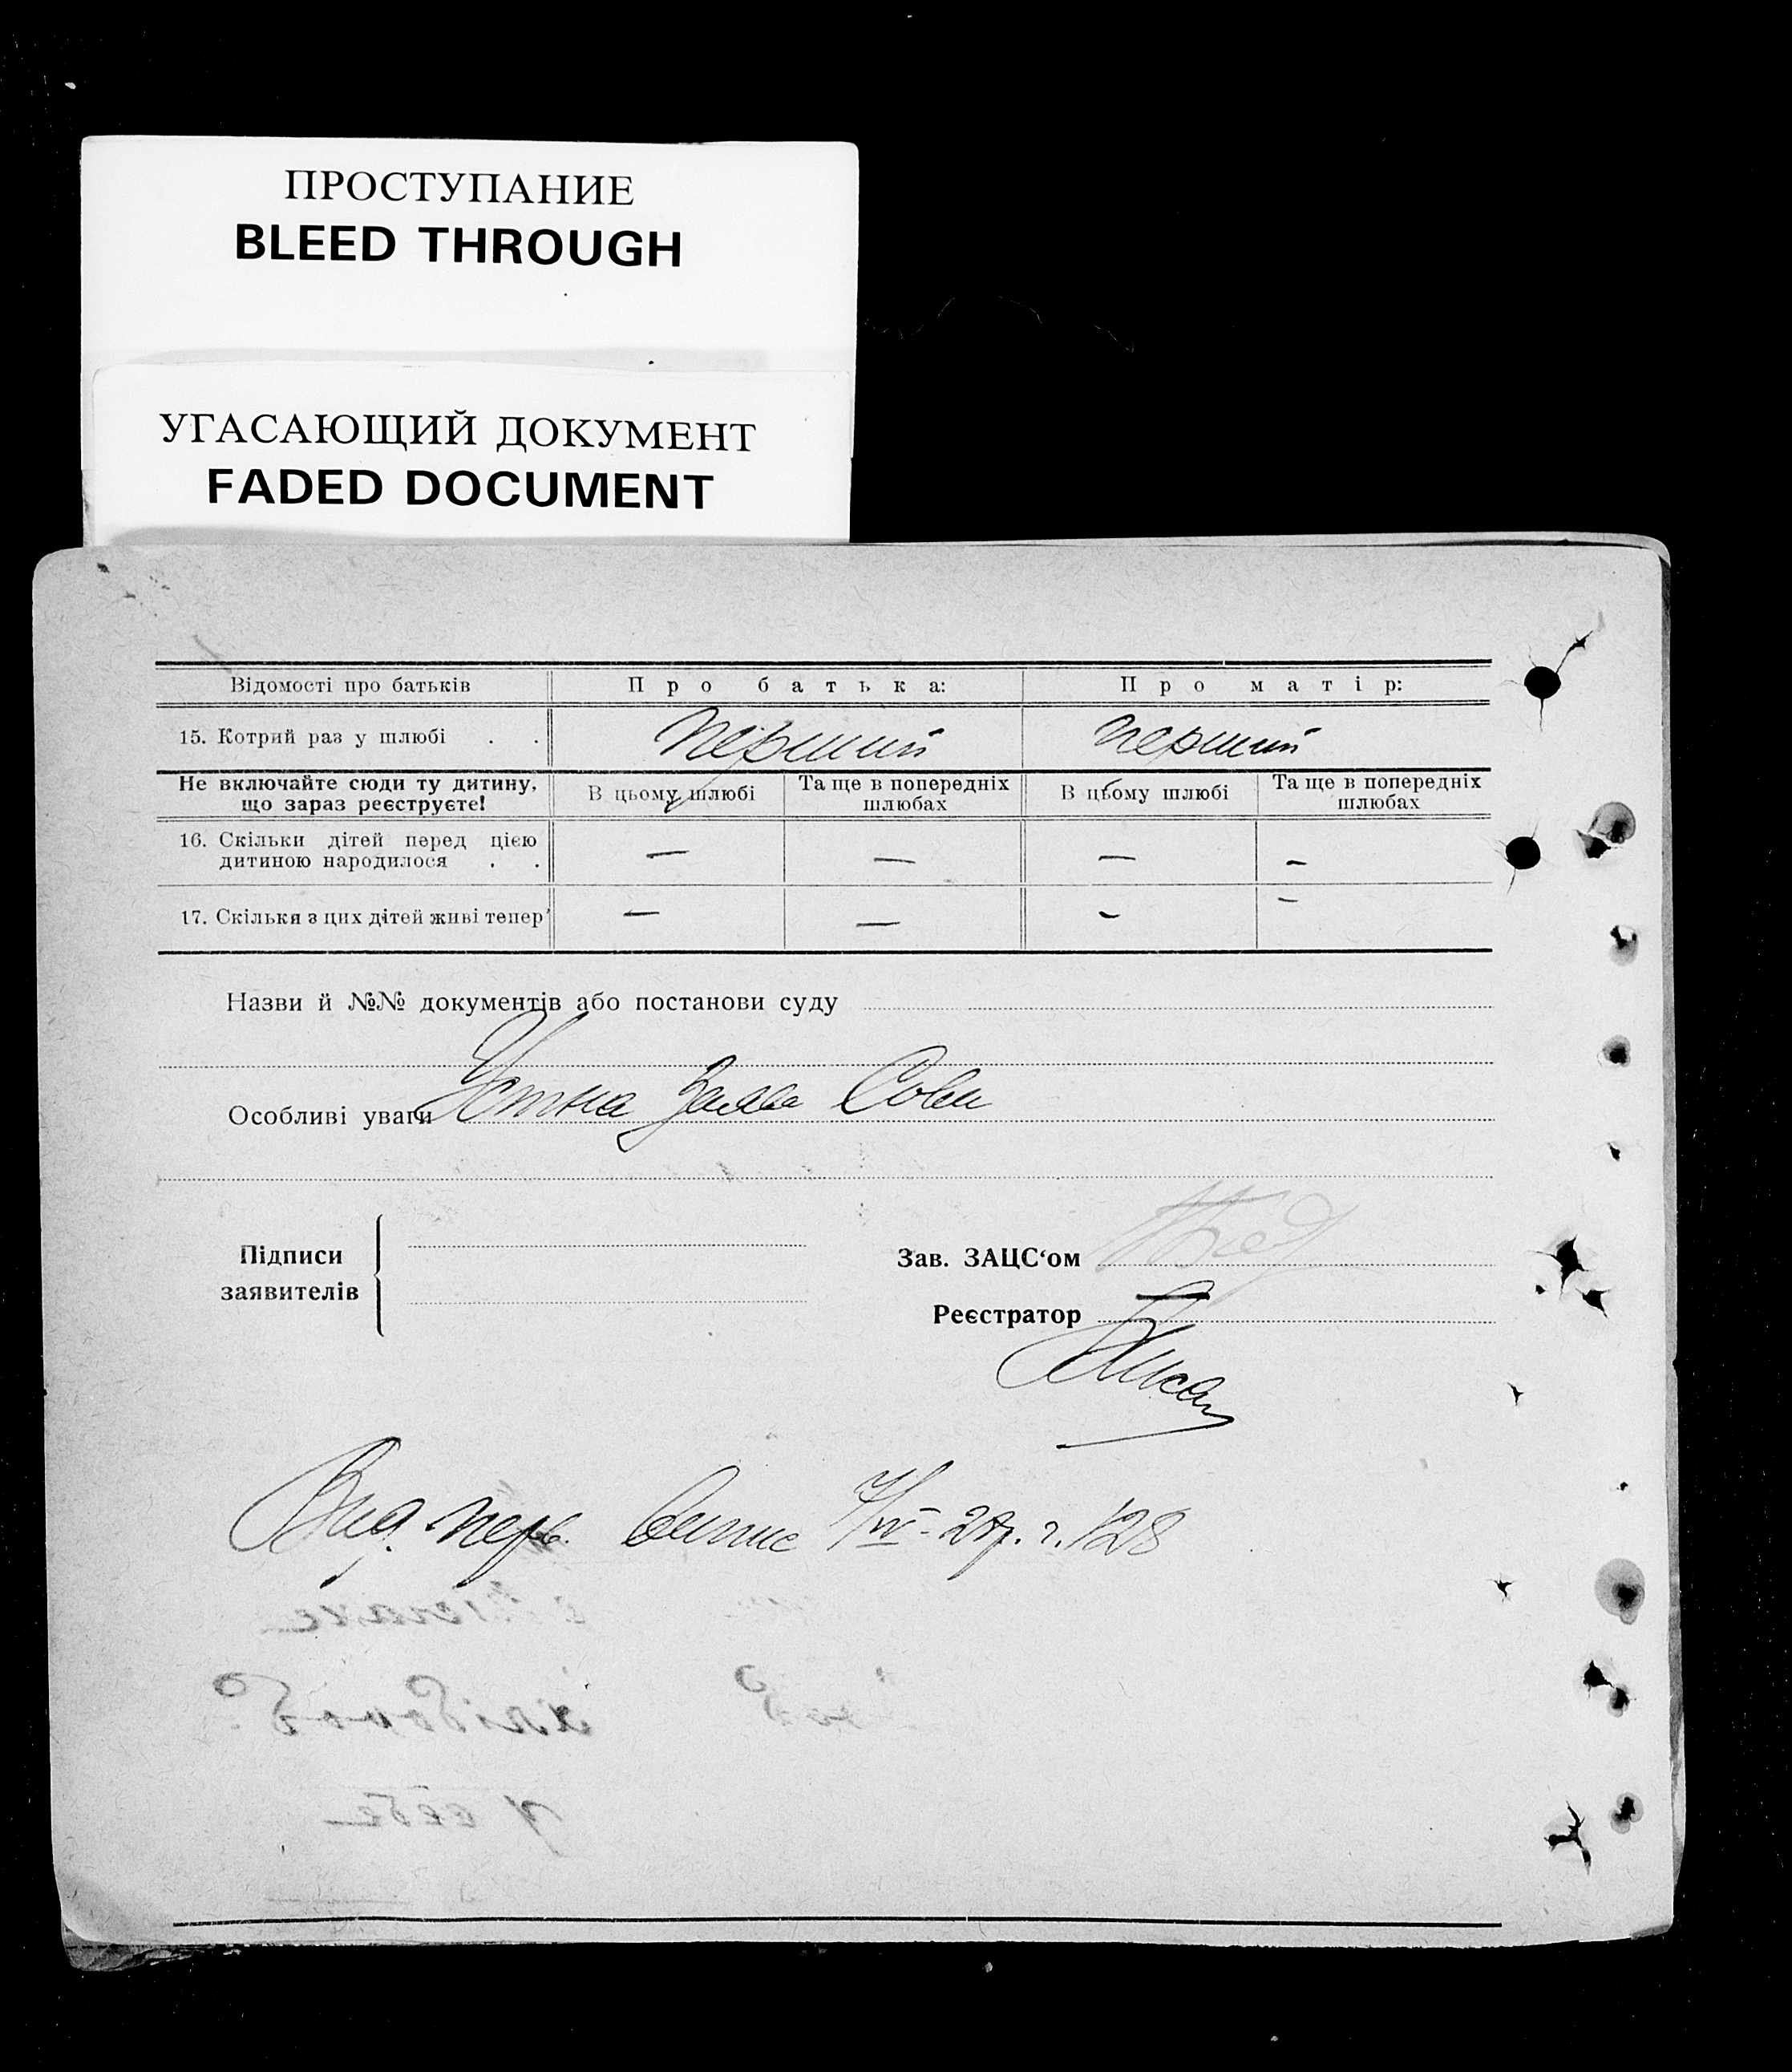 ПРОСТУПАНИЕ
BLEED THROUGH
УГАСАЮЩИЙ ДОКУМЕНТ
FADED DOCUMENT
Відомості про батьків Про батька: Про матір:
15. Котрий раз у шлюбі . . перший перший
Не включайте сюди ту дитину, що зараз реєструєте! В цьому шлюбі Та ще в попередніх шлюбах В цьому шлюбі Та ще в попередніх шлюбах
16. Скільки дітей перед цією
дитиною народилося . . — — — —
17. Скільки з цих дітей живі тепер — — — —
Назви й №№ документів або постанови суду
Особливі уваги Устна Заява
Підписи
заявителів
Зав. ЗАЦС‘ом
Реєстратор
Вид. перв. випис